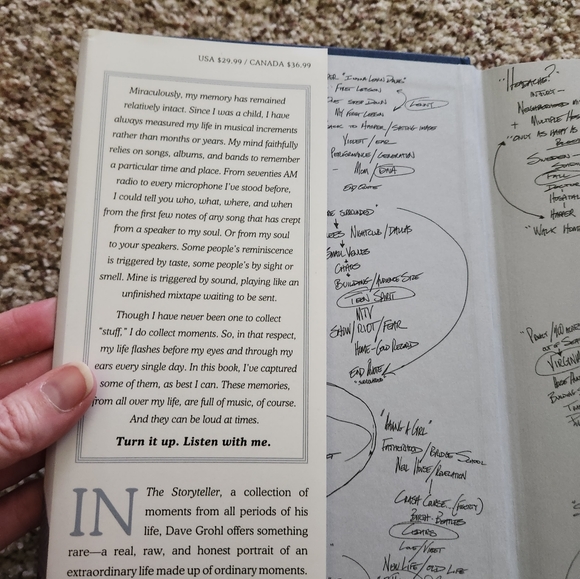 USA $29.99 / CANADA $36.99
Miraculously, my memory has remained
relatively intact. Since I was a child, I have
always measured my life in musical increments
rather than months or years. My mind faithfully
relies on songs, albums, and bands to remember
a particular time and place. From seventies AM
radio to every microphone I've stood before,
I could tell you who, what, where, and when
from the first few notes of any song that has crept
from a speaker to my soul. Or from my soul
to your speakers. Some people's reminiscence
is triggered by taste, some people's by sight or
smell. Mine is triggered by sound, playing like an
unfinished mixtape waiting to be sent.
Though I have never been one to collect
"stuff," I do collect moments. So, in that respect,
my life flashes before my eyes and through my
ears every single day. In this book, I've captured
some of them, as best I can. These memories,
from all over my life, are full of music, of course.
And they can be loud at times.
Turn it up. Listen with me.
IN The Storyteller, a collection of
moments from all periods of his
life, Dave Grohl offers something
rare—a real, raw, and honest portrait of an
extraordinary life made up of ordinary moments.
FIRST LESSON
MY FIRST LESSON
VIOLET / FEAR
MOM / DNA
END QUOTE
NIGHTCLUB / DALLAS
SMALL VENUES
CHAOS
BUILDING / AUDIENCE SIZE
TEEN SPIRIT
MTV
SHOW / RIOT / FEAR
HOME - GOLD RECORD
END QUOTE
"SURROUNDED"
FATHERHOOD / BRIDGE SCHOOL
NEW HOUSE / REVELATION
CRASH COURSE
BIRTH - BEATLES
LOVE / VIOLET
NEW LIFE / OLD LIFE
"HEADACHE?"
+ MULTIPLE
SWEDEN
FALL
HOSPITAL
HARPER
"WALK
VIRGINIA